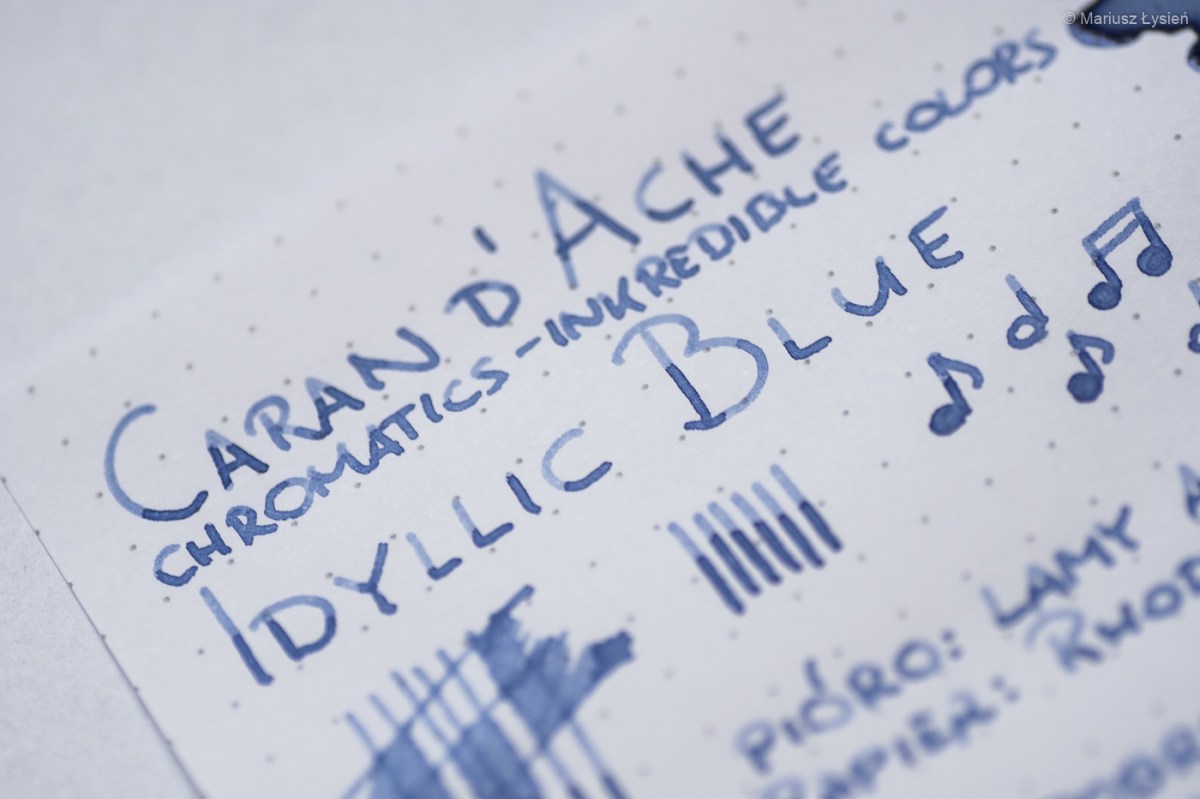 © Mariusz Łysień
CARAN D'ACHE
CHROMATICS-INKREDIBLE COLORS
IDYLLIC BLUE
PIÓRO: LAMY
PAPIER: